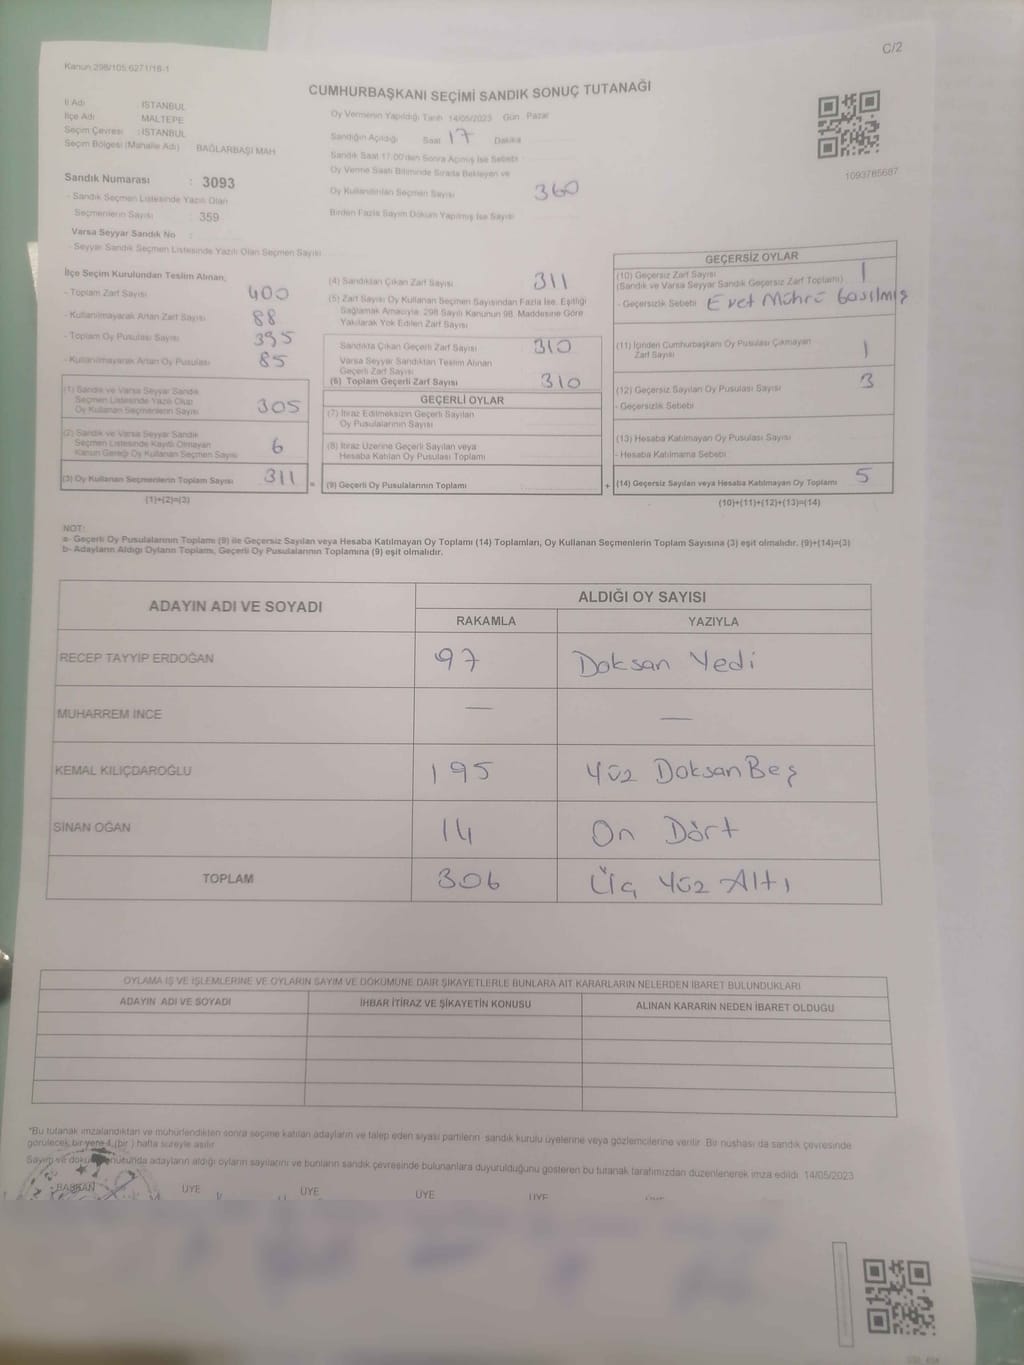 C/2
Kanun 298/105 6271/18-1
CUMHURBAŞKANI SEÇİMİ SANDIK SONUÇ TUTANAĞI
İl Adı : İSTANBUL
İlçe Adı : MALTEPE
Seçim Çevresi : İSTANBUL
Seçim Bölgesi (Mahalle Adı) : BAĞLARBAŞI MAH
Oy Vermenin Yapıldığı Tarih 14/05/2023 Gün Pazar
Sandığın Açıldığı Saat 17 Dakika
Sandık Saat 17:00'den Sonra Açılmış İse Sebebi
Oy Verme Saati Bitiminde Sırada Bekleyen ve
Oy Kullandırılan Seçmen Sayısı 360
Birden Fazla Sayım Döküm Yapılmış İse Sayısı
1093765687
Sandık Numarası : 3093
- Sandık Seçmen Listesinde Yazılı Olan
Seçmenlerin Sayısı : 359
Varsa Seyyar Sandık No :
- Seyyar Sandık Seçmen Listesinde Yazılı Olan Seçmen Sayısı
İlçe Seçim Kurulundan Teslim Alınan;
- Toplam Zarf Sayısı 400
- Kullanılmayarak Artan Zarf Sayısı 88
- Toplam Oy Pusulası Sayısı 395
- Kullanılmayarak Artan Oy Pusulası 85
(1) Sandık ve Varsa Seyyar Sandık
Seçmen Listesinde Yazılı Olup
Oy Kullanan Seçmenlerin Sayısı 305
(2) Sandık ve Varsa Seyyar Sandık
Seçmen Listesinde Kayıtlı Olmayan
Kanun Gereği Oy Kullanan Seçmen Sayısı 6
(3) Oy Kullanan Seçmenlerin Toplam Sayısı 311 =
(1)+(2)=(3)
(4) Sandıktan Çıkan Zarf Sayısı 311
(5) Zarf Sayısı Oy Kullanan Seçmen Sayısından Fazla İse, Eşitliği
Sağlamak Amacıyla, 298 Sayılı Kanunun 98. Maddesine Göre
Yakılarak Yok Edilen Zarf Sayısı
Sandıkta Çıkan Geçerli Zarf Sayısı 310
Varsa Seyyar Sandıktan Teslim Alınan
Geçerli Zarf Sayısı
(6) Toplam Geçerli Zarf Sayısı 310
GEÇERLİ OYLAR
(7) İtiraz Edilmeksizin Geçerli Sayılan
Oy Pusulalarının Sayısı
(8) İtiraz Üzerine Geçerli Sayılan veya
Hesaba Katılan Oy Pusulası Toplamı
(9) Geçerli Oy Pusulalarının Toplamı +
GEÇERSİZ OYLAR
(10) Geçersiz Zarf Sayısı 1
(Sandık ve Varsa Seyyar Sandık Geçersiz Zarf Toplamı)
- Geçersizlik Sebebi Evet Mührü basılmış
(11) İçinden Cumhurbaşkanı Oy Pusulası Çıkmayan
Zarf Sayısı 1
(12) Geçersiz Sayılan Oy Pusulası Sayısı 3
- Geçersizlik Sebebi
(13) Hesaba Katılmayan Oy Pusulası Sayısı
- Hesaba Katılmama Sebebi
(14) Geçersiz Sayılan veya Hesaba Katılmayan Oy Toplamı 5
(10)+(11)+(12)+(13)=(14)
NOT:
a- Geçerli Oy Pusulalarının Toplamı (9) ile Geçersiz Sayılan veya Hesaba Katılmayan Oy Toplamı (14) Toplamları, Oy Kullanan Seçmenlerin Toplam Sayısına (3) eşit olmalıdır. (9)+(14)=(3)
b- Adayların Aldığı Oyların Toplamı, Geçerli Oy Pusulalarının Toplamına (9) eşit olmalıdır.
ADAYIN ADI VE SOYADI ALDIĞI OY SAYISI
RAKAMLA YAZIYLA
RECEP TAYYİP ERDOĞAN 97 Doksan Yedi
MUHARREM İNCE — —
KEMAL KILIÇDAROĞLU 195 Yüz Doksan Beş
SİNAN OĞAN 14 On Dört
TOPLAM 306 Üç Yüz Altı
OYLAMA İŞ VE İŞLEMLERİNE VE OYLARIN SAYIM VE DÖKÜMÜNE DAİR ŞİKAYETLERLE BUNLARA AİT KARARLARIN NELERDEN İBARET BULUNDUKLARI
ADAYIN ADI VE SOYADI İHBAR İTİRAZ VE ŞİKAYETİN KONUSU ALINAN KARARIN NEDEN İBARET OLDUĞU
*Bu tutanak imzalandıktan ve mühürlendikten sonra seçime katılan adayların ve talep eden siyasi partilerin sandık kurulu üyelerine veya gözlemcilerine verilir. Bir nüshası da sandık çevresinde
görülecek bir yere 1 (bir ) hafta süreyle asılır.
Sayım ve döküm sonucunda adayların aldığı oyların sayılarını ve bunların sandık çevresinde bulunanlara duyurulduğunu gösteren bu tutanak tarafımızdan düzenlenerek imza edildi. 14/05/2023
BAŞKAN ÜYE ÜYE ÜYE ÜYE